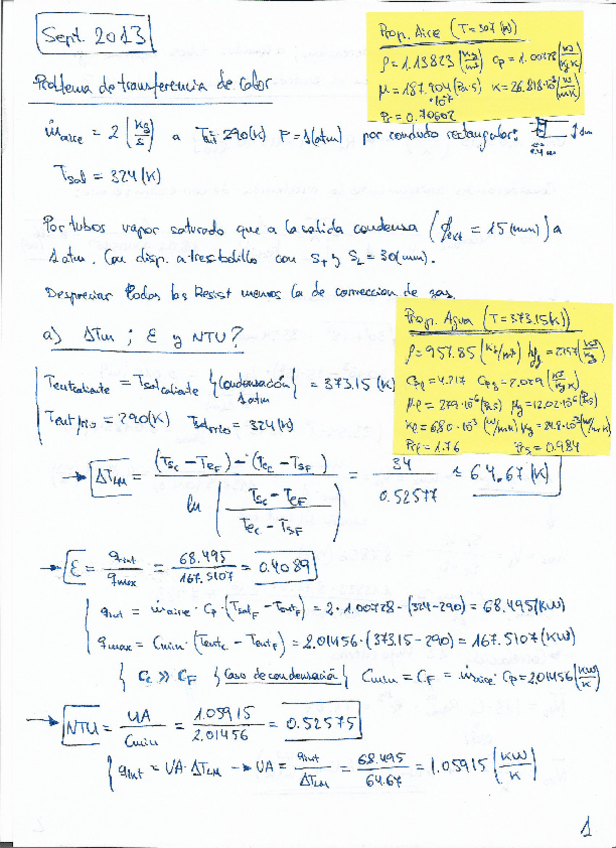 Sept. 2013
Prop. Aire (T=307(K))
ρ=1.13823 (kg/m³) Cp=1.00728 (kJ/kg K)
μ=187.904 (Pa·s) ·10⁻⁷ K=26.818·10⁻³ (W/mK)
Pr=0.70602
Problema de transferencia de calor
ṁaire = 2 (kg/s) a 290(K) P=1(atm) por conducto rectangular: 1m
Tsal = 324(K)
Por tubos vapor saturado que a la salida condensa (ϕext = 15(mm)) a
1 atm. Con disp. a tresbolillo con ST y SL = 30(mm).
Despreciar todas las Resist menos la de conveccion de gas.
a) ΔTlm ; ε y NTU?
Prop. Agua (T=373.15(K))
ρ=957.85 (kg/m³) hfg=2257 (kJ/kg)
Cpl=4.217 Cpg=2.029 (kJ/kg K)
μl=279·10⁻⁶ (Pa·s) μg=12.02·10⁻⁶ (Pa·s)
Kl=680·10⁻³ (W/mK) Kg=24.8·10⁻³ (W/mK)
Prl=1.76 =0.984
Tentcaliente = Tsalcaliente {Condensación 1atm} = 373.15 (K)
Tentfrio = 290(K) Tsalfrio = 324(K)
→ ΔTlm = ((Tsc − TeF) − (Tec − TsF)) / ln ((Tsc − TeF)/(Tec − TsF)) = 34/0.52577 ≈ 64.67 (K)
→ ε = qint/qmax = 68.495/167.5107 = 0.4089
qint = ṁaire · Cp · (TsalF − TentF) = 2 · 1.00728 · (324−290) = 68.495(KW)
qmax = Cmin · (Tentc − TentF) = 2.01456 · (373.15 − 290) = 167.5107 (KW)
{ Cc ≫ CF {Caso de condensación} Cmin = CF = ṁaire · Cp = 2.01456 (KW/K)
→ NTU = UA/Cmin = 1.05915/2.01456 = 0.52575
{ qint = UA · ΔTlm → UA = qint/ΔTlm = 68.495/64.67 = 1.05915 (KW/K)
1